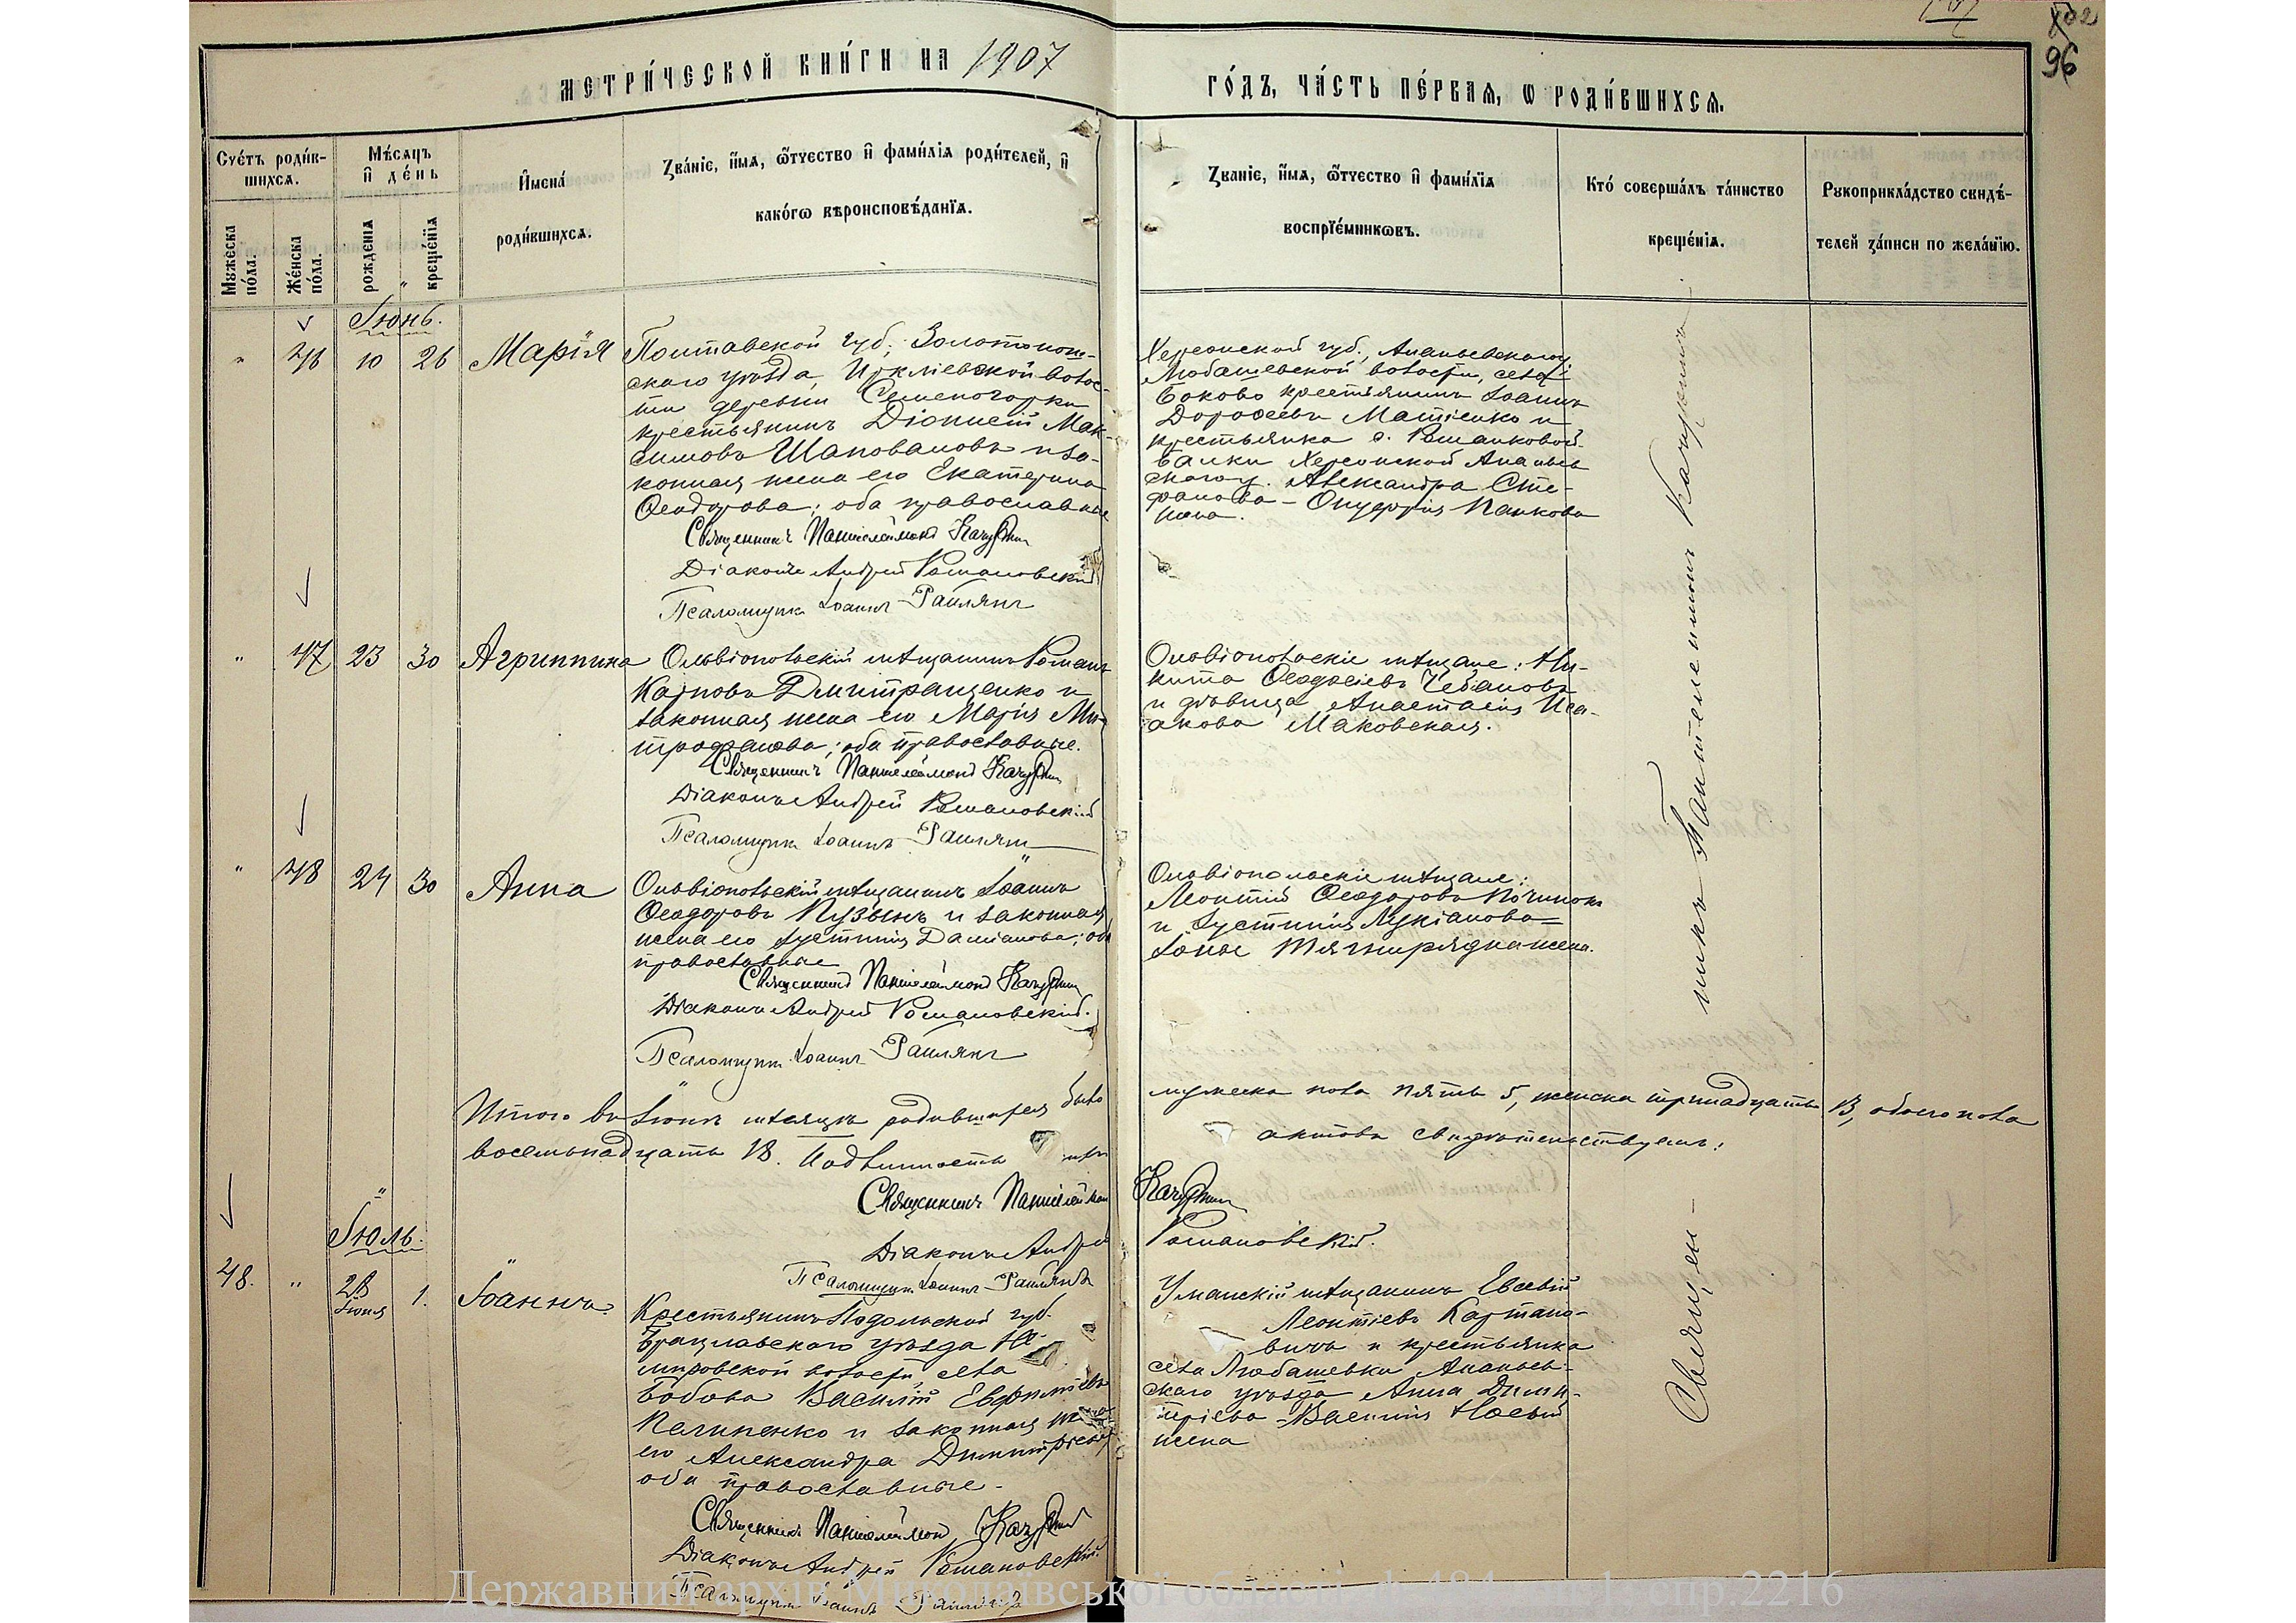 96
МЕТРИ́ЧЕСКОЙ КНИ́ГИ НА 1907
ГО́ДЪ, ЧА́СТЬ ПЕ́РВАЯ, Ѡ РОДИ́ВШИХСѦ.
Сче́тъ роди́в-
шихсѧ.
Мꙋ́жеска
по́ла.
Же́нска
по́ла.
Мѣ́сѧцъ
и҆ де́нь
рожде́нїѧ
креще́нїѧ
И҆мена̀
роди́вшихсѧ.
Зва́нїе, и҆́мѧ, ѻ҆́тчество и҆ фамѝлїѧ роди́телей, и҆
како́гѡ вѣроисповѣ́данїѧ.
Зва́нїе, и҆́мѧ, ѻ҆́тчество и҆ фамѝлїѧ
воспрїе́мникѡвъ.
Кто̀ соверша́лъ та́инство
креще́нїѧ.
Рꙋкоприкла́дство свидѣ́-
телей за́писи по жела́нїю.
Іюнь.
" 46 10 26 Марія
Полтавской губ., Золотонош-
скаго уѣзда, Ирклiевской волос-
ти деревни Семеногорки
крестьянинъ Діонисій Мак-
симовъ Шаповаловъ и за-
конная жена его Екатерина
Ѳеодорова; оба православные
Священникъ Пантелеимонъ
Діаконъ Андрей Романовскій
Псаломщикъ Іоаннъ Раилянъ
Херсонской губ., Ананьевскаго у.
Любашевской волости, села
Боково крестьянинъ Іоаннъ
Дороѳеевъ Матіенко и
крестьянка с. Романковой
Балки Херсонской Ананьев
скаго у. Александра Сте-
фанова – Онуфрія Панкова
жена.
" 47 23 30 Агриппина
Ольвіопольскій мѣщанинъ Романъ
Карповъ Дмитращенко и
законная жена его Марія Ми-
трофанова; оба православные.
Священникъ Пантелеимонъ
Діаконъ Андрей Романовскій
Псаломщикъ Іоаннъ Раилянъ
Ольвіопольскіе мѣщане: Ни-
кита Ѳеодосіевъ Чебановъ
и дѣвица Анастасія Иса-
акова Маковская.
" 48 24 30 Анна
Ольвіопольскій мѣщанинъ Іоаннъ
Ѳеодоровъ Пузынъ и законная
жена его Іустинія Даміанова; оба
православные
Священникъ Пантелеимонъ
Діаконъ Андрей Романовскій.
Псаломщикъ Іоаннъ Раилянъ
Ольвіопольскіе мѣщане:
Леонтій Ѳеодоровъ
и Іустинія Лукіанова
жена.
Итого въ Іюнѣ мѣсяцѣ родившихся было
мужеска пола пять 5, женска тринадцать 13, обоего пола
восемнадцать 18.
актовъ свидѣтельствуемъ:
Священникъ Пантелеимонъ
Діаконъ Андрей Романовскій.
Псаломщикъ Іоаннъ Раилянъ
Іюль.
48. " 28 Іюня 1. Іоаннъ
Крестьянинъ Подольской губ.
Брацлавскаго уѣзда
мировской волости села
Бобова Василій Евфиміевъ
и законная жена
его Александра Димитріева
оба православные.
Священникъ Пантелеимонъ
Діаконъ Андрей Романовскій.
Псаломщикъ Іоаннъ Раилянъ
Уманскій мѣщанинъ Евсевій
Леонтіевъ Картано-
вичъ и крестьянка
села Любашевки Ананьев-
скаго уѣзда Анна Дими-
тріева – Василія
жена
Священ-
никъ Пантелеимонъ
Державний архів Миколаївської області, ф.484, оп.1, спр.2216